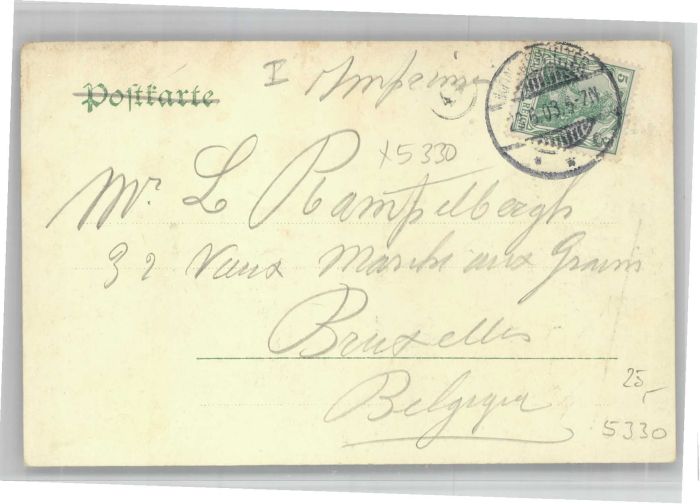 Postkarte
I Imprimé
5
.5.03.5-7N.
x5330
Mr. L Rampelbergh
32 Vaux Marché aux Grains
Bruxelles
Belgique
25,-
5330